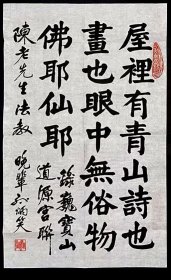 屋裡有青山詩也
畫也眼中無俗物
佛耶仙耶
錄巍寶山
道源宮聯
陳老先生法教
晚輩